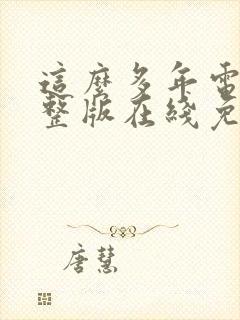 這麼多年電
整版在綫免
唐慧